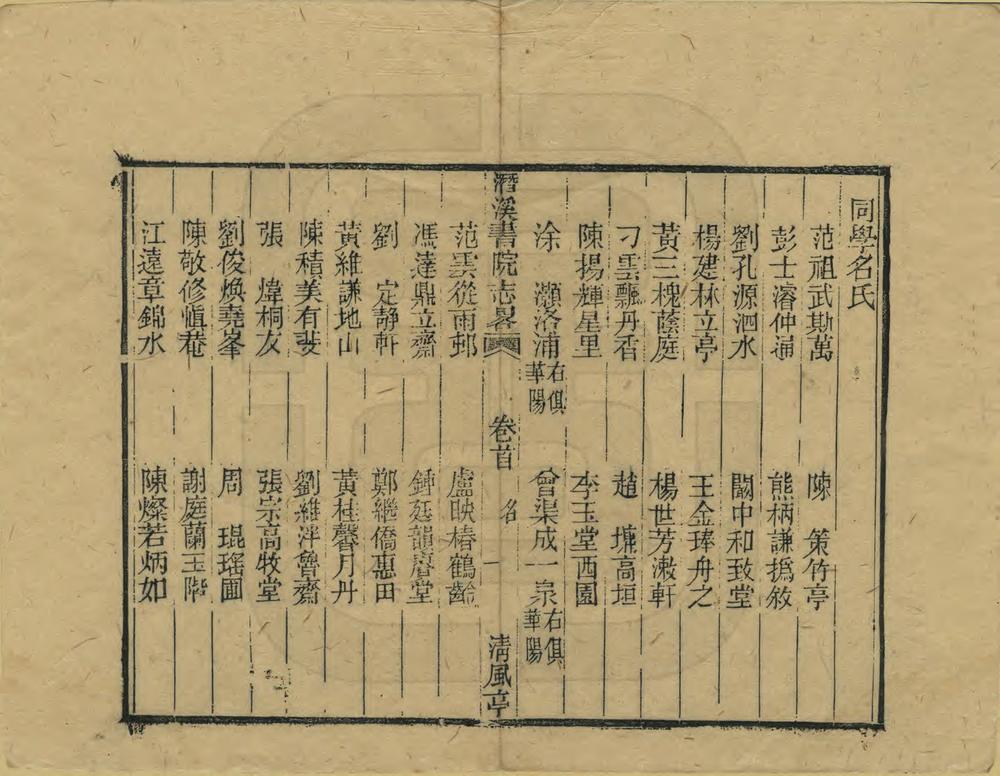 同學名氏
范祖武斯萬　陳　策竹亭
彭士濬仲通　熊柄謙撝敘
劉孔源泗水　闞中和致堂
楊建林立亭　王金琫舟之
黃三槐蔭庭　楊世芳漱軒
刁雲飄丹香　趙　墉高垣
陳揚輝星里　李玉堂西園
涂　灝洛浦右俱華陽　曾渠成一泉右俱華陽
潛溪書院志畧　卷首　名　一　清風亭
范雲從雨邨　盧映椿鶴齡
馮達鼎立齋　鍾廷韻賡堂
劉　定靜軒　鄭繼僑惠田
黃維謙地山　黃桂馨月丹
陳積美有斐　劉維泮魯齋
張　煒桐友　張宗高牧堂
劉俊煥堯峯　周　琨瑤圃
陳敬修愼菴　謝庭蘭玉階
江遠章錦水　陳燦若炳如